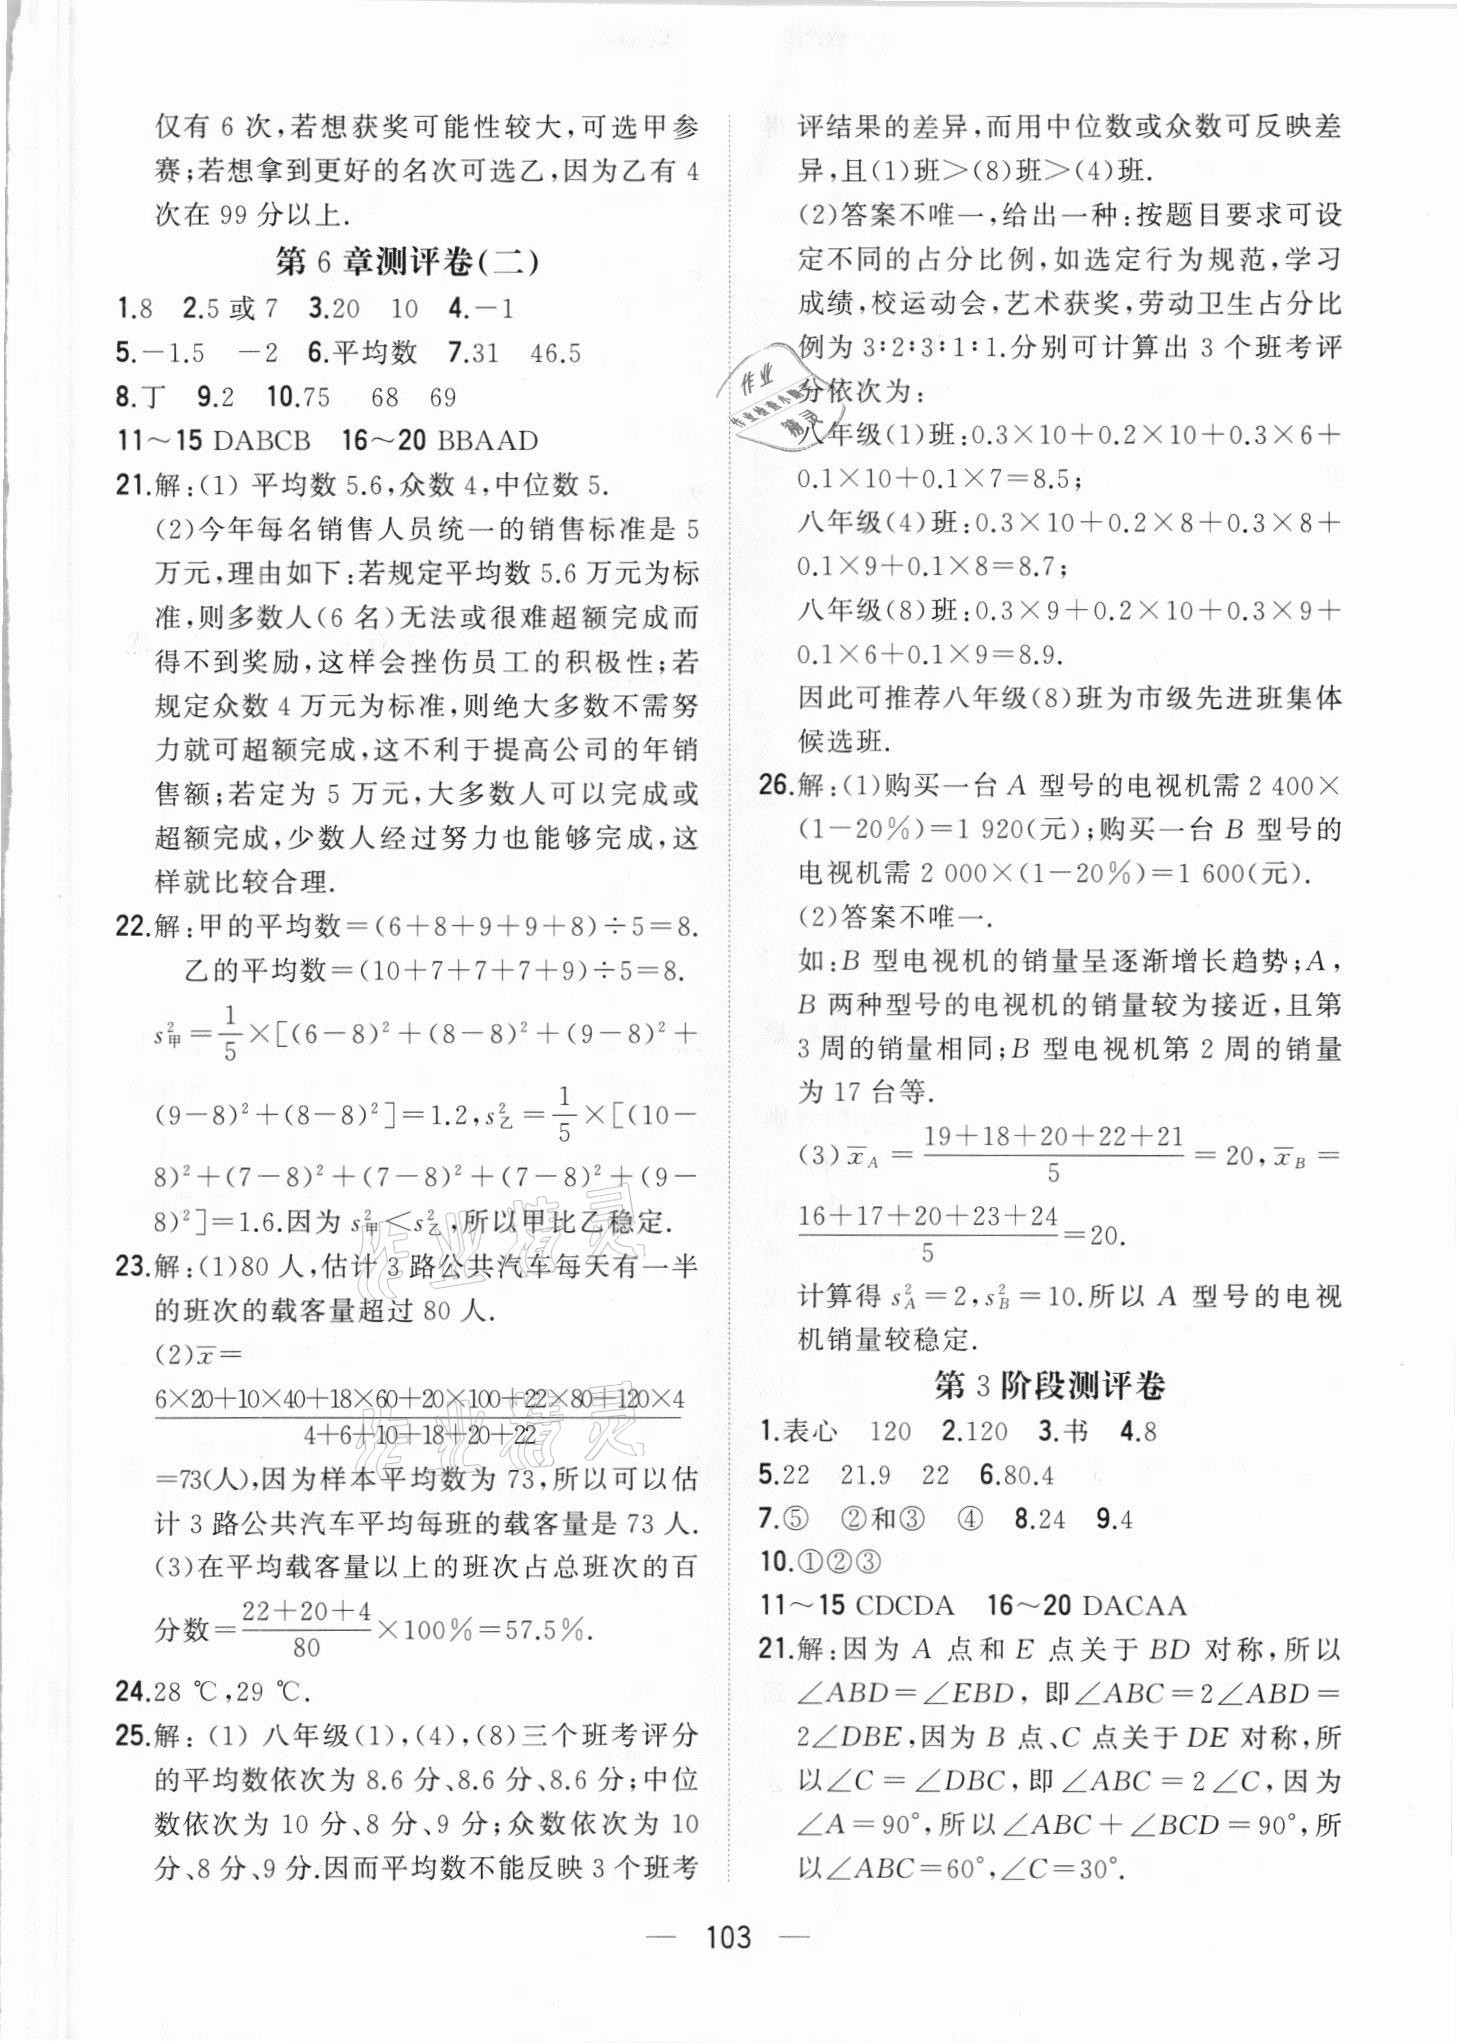 仅有 6 次,若想获奖可能性较大,可选甲参
赛;若想拿到更好的名次可选乙,因为乙有 4
次在 99 分以上.
第 6 章测评卷(二)
1.8  2.5 或 7  3.20  10  4.－1
5.－1.5  －2  6.平均数  7.31  46.5
8.丁  9.2  10.75  68  69
11～15 DABCB  16～20 BBAAD
21.解:(1) 平均数 5.6,众数 4,中位数 5.
(2)今年每名销售人员统一的销售标准是 5
万元,理由如下:若规定平均数 5.6 万元为标
准,则多数人(6 名)无法或很难超额完成而
得不到奖励,这样会挫伤员工的积极性;若
规定众数 4 万元为标准,则绝大多数不需努
力就可超额完成,这不利于提高公司的年销
售额;若定为 5 万元,大多数人可以完成或
超额完成,少数人经过努力也能够完成,这
样就比较合理.
22.解:甲的平均数＝(6＋8＋9＋9＋8)÷5＝8.
乙的平均数＝(10＋7＋7＋7＋9)÷5＝8.
s²甲＝1/5×[(6－8)²＋(8－8)²＋(9－8)²＋
(9－8)²＋(8－8)²]＝1.2,s²乙＝1/5×[(10－
8)²＋(7－8)²＋(7－8)²＋(7－8)²＋(9－
8)²]＝1.6.因为 s²甲＜s²乙,所以甲比乙稳定.
23.解:(1)80 人,估计 3 路公共汽车每天有一半
的班次的载客量超过 80 人.
(2)x̄＝
6×20＋10×40＋18×60＋20×100＋22×80＋120×4
4＋6＋10＋18＋20＋22
＝73(人),因为样本平均数为 73,所以可以估
计 3 路公共汽车平均每班的载客量是 73 人.
(3)在平均载客量以上的班次占总班次的百
分数＝(22＋20＋4)/80×100%＝57.5%.
24.28 ℃,29 ℃.
25.解:(1) 八年级(1),(4),(8)三个班考评分
的平均数依次为 8.6 分、8.6 分、8.6 分;中位
数依次为 10 分、8 分、9 分;众数依次为 10
分、8 分、9 分.因而平均数不能反映 3 个班考
评结果的差异,而用中位数或众数可反映差
异,且(1)班＞(8)班＞(4)班.
(2)答案不唯一,给出一种:按题目要求可设
定不同的占分比例,如选定行为规范,学习
成绩,校运动会,艺术获奖,劳动卫生占分比
例为 3∶2∶3∶1∶1.分别可计算出 3 个班考评
分依次为:
八年级(1)班:0.3×10＋0.2×10＋0.3×6＋
0.1×10＋0.1×7＝8.5;
八年级(4)班:0.3×10＋0.2×8＋0.3×8＋
0.1×9＋0.1×8＝8.7;
八年级(8)班:0.3×9＋0.2×10＋0.3×9＋
0.1×6＋0.1×9＝8.9.
因此可推荐八年级(8)班为市级先进班集体
候选班.
26.解:(1)购买一台 A 型号的电视机需 2 400×
(1－20%)＝1 920(元);购买一台 B 型号的
电视机需 2 000×(1－20%)＝1 600(元).
(2)答案不唯一.
如:B 型电视机的销量呈逐渐增长趋势;A,
B 两种型号的电视机的销量较为接近,且第
3 周的销量相同;B 型电视机第 2 周的销量
为 17 台等.
(3)x̄A＝(19＋18＋20＋22＋21)/5＝20,x̄B＝
(16＋17＋20＋23＋24)/5＝20.
计算得 s²A＝2,s²B＝10.所以 A 型号的电视
机销量较稳定.
第 3 阶段测评卷
1.表心  120  2.120  3.书  4.8
5.22  21.9  22  6.80.4
7.⑤  ②和③  ④  8.24  9.4
10.①②③
11～15 CDCDA  16～20 DACAA
21.解:因为 A 点和 E 点关于 BD 对称,所以
∠ABD＝∠EBD, 即∠ABC＝2∠ABD＝
2∠DBE,因为 B 点、C 点关于 DE 对称,所
以∠C＝∠DBC,即∠ABC＝2∠C,因为
∠A＝90°,所以∠ABC＋∠BCD＝90°,所
以∠ABC＝60°,∠C＝30°.
— 103 —
作业
精灵
作业精灵
作业精灵